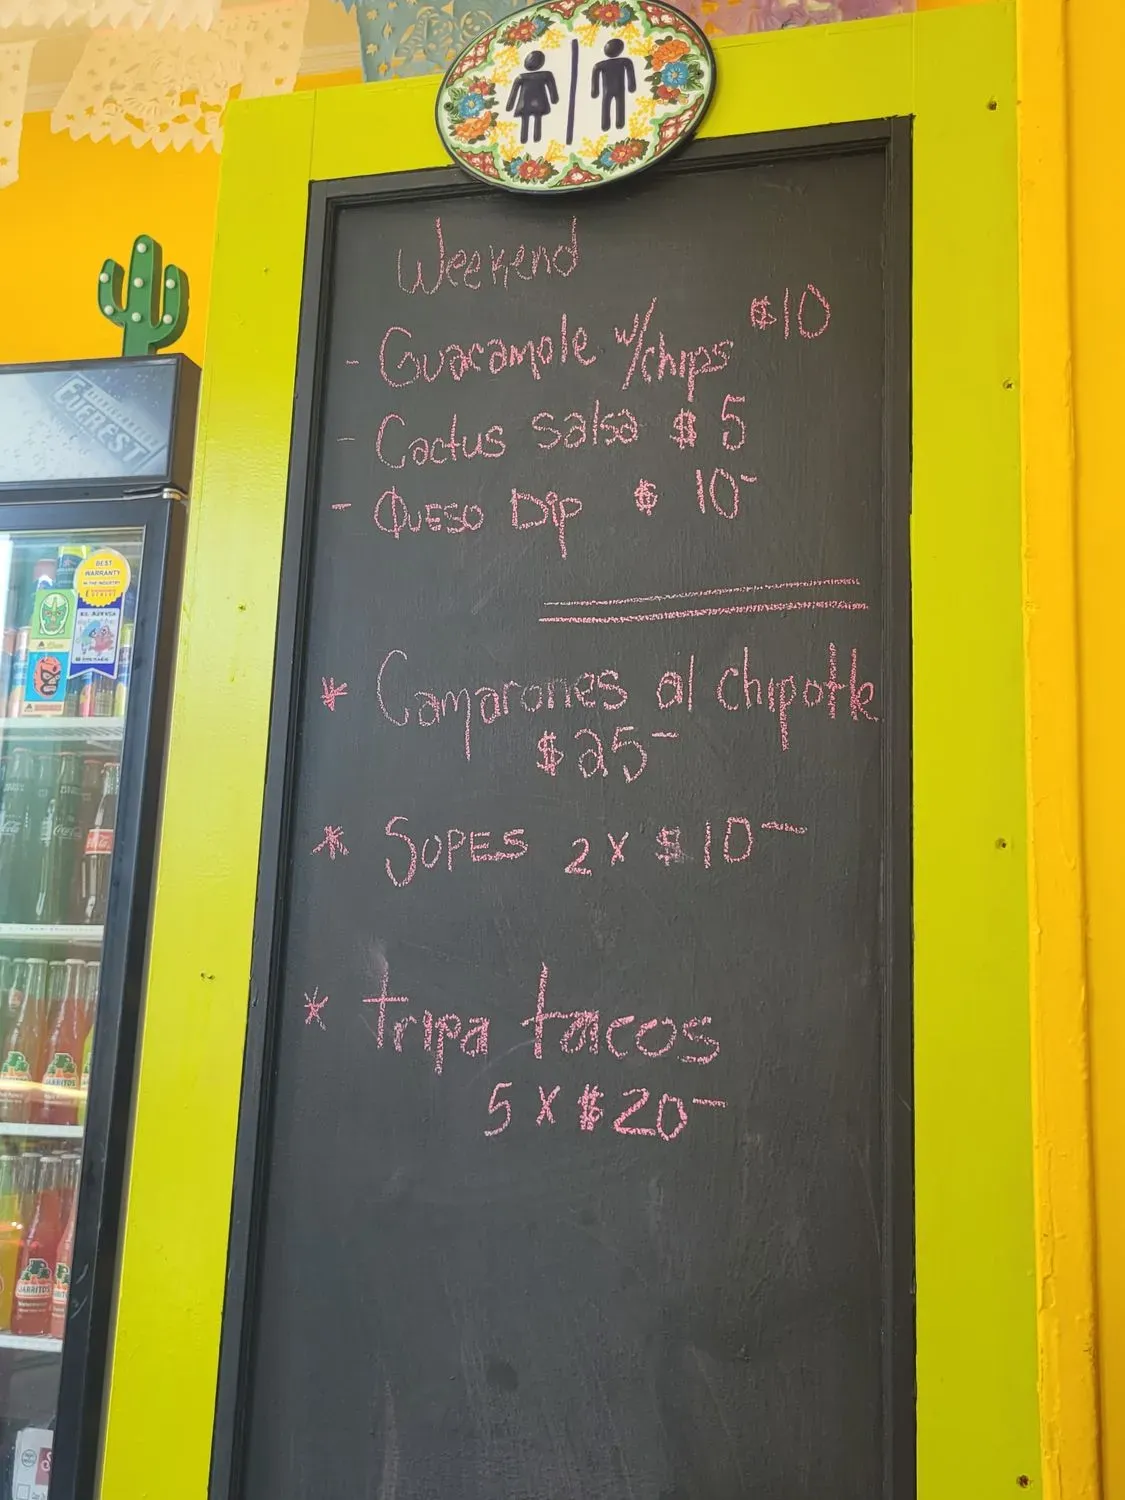 Weekend
- Guacamole w/chips $10
- Cactus Salsa $5
- QUESO Dip $ 10-
* Camarones al chipotle
$25-
* SOPES 2 X $10-
* tripa tacos
5 X $20-
EVEREST
BEST
WARRANTY
IN THE INDUSTRY
Coca-Cola
JARRITOS
JARRITOS